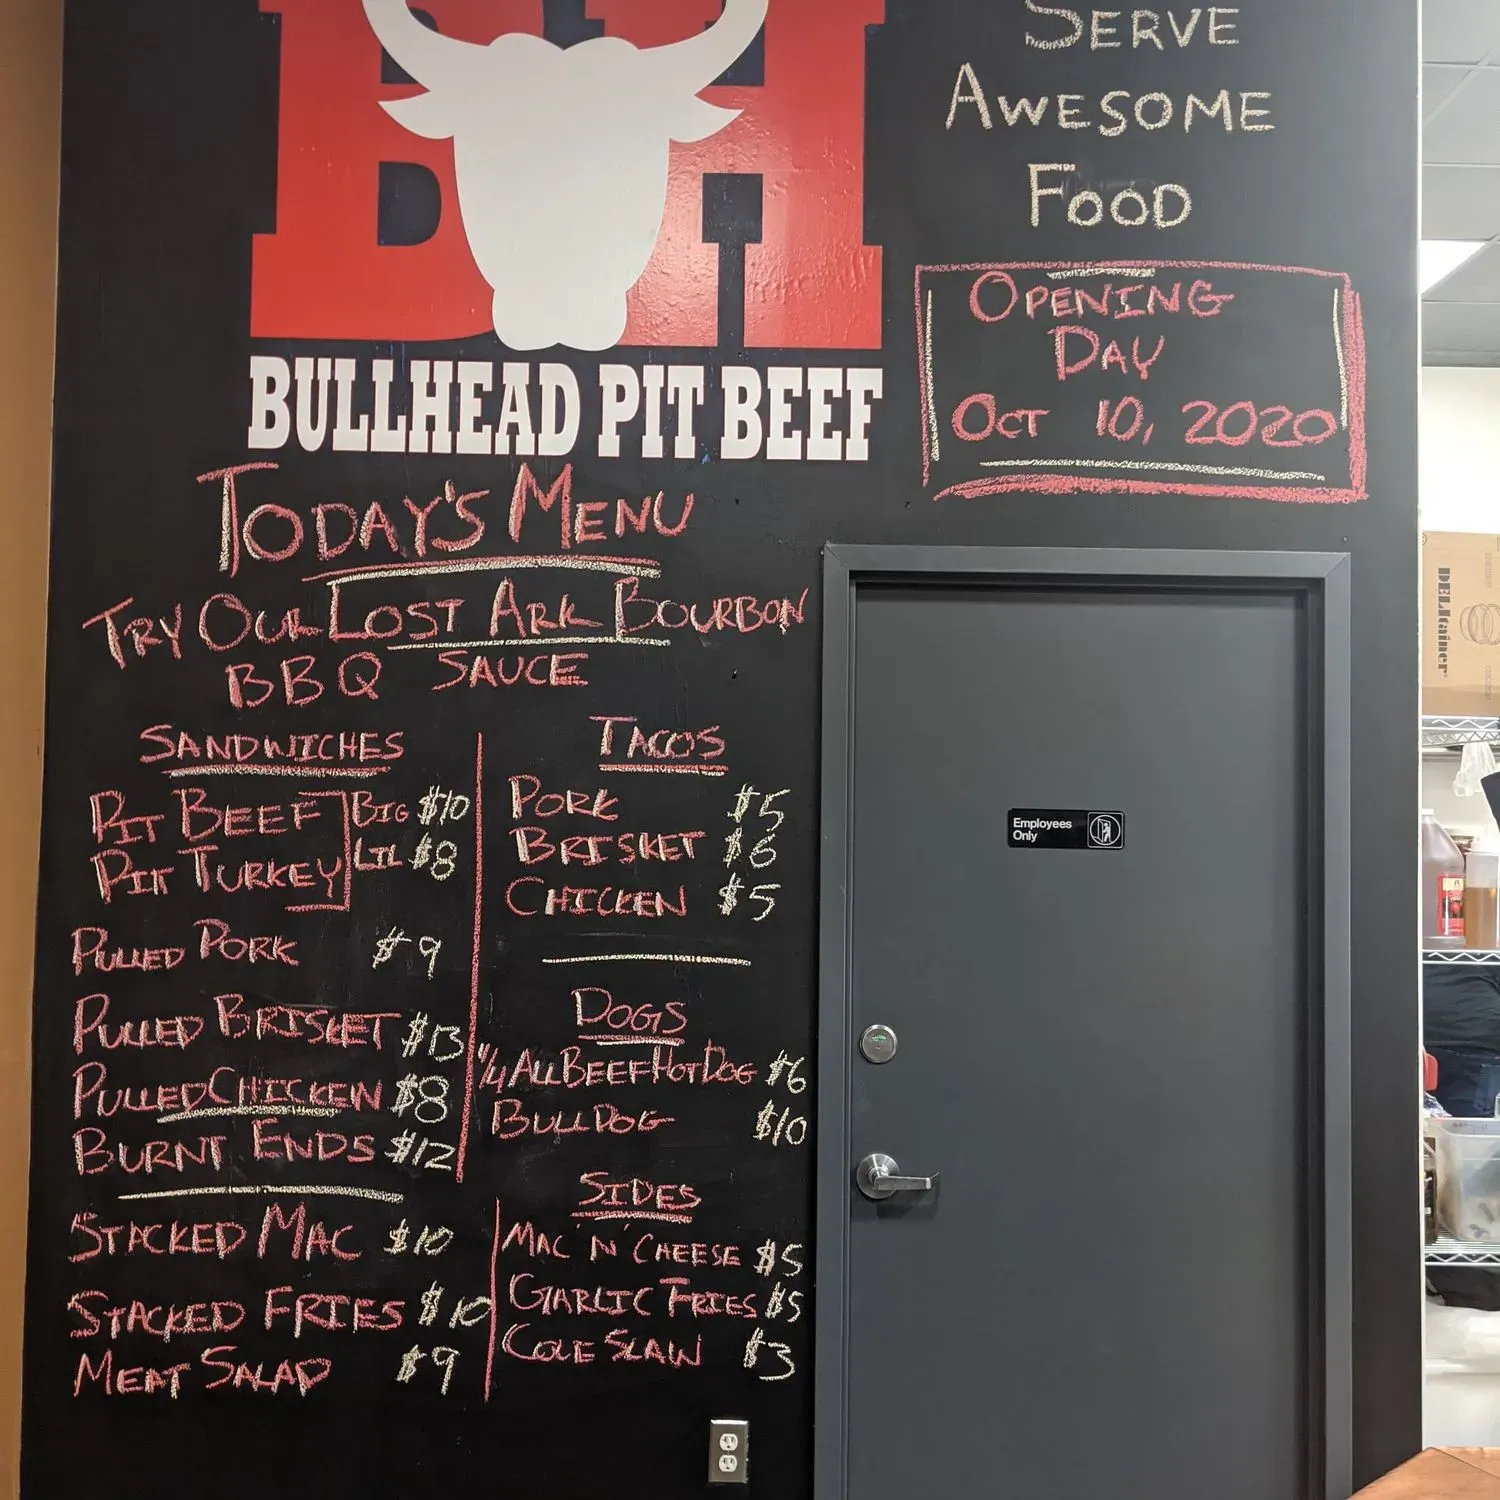 BH
BULLHEAD PIT BEEF
SERVE
AWESOME
FOOD
OPENING
DAY
OCT 10, 2020
TODAY'S MENU
TRY OUR LOST ARK BOURBON
BBQ SAUCE
SANDWICHES
PIT BEEF BIG $10
PIT TURKEY LIL $8
PULLED PORK $9
PULLED BRISKET $13
PULLED CHICKEN $8
BURNT ENDS $12
STACKED MAC $10
STACKED FRIES $10
MEAT SALAD $9
TACOS
PORK $5
BRISKET $6
CHICKEN $5
DOGS
1/4 ALL BEEF HOT DOG $6
BULLDOG $10
SIDES
MAC 'N' CHEESE $5
GARLIC FRIES $5
COLE SLAW $3
Employees
Only
DELItainer